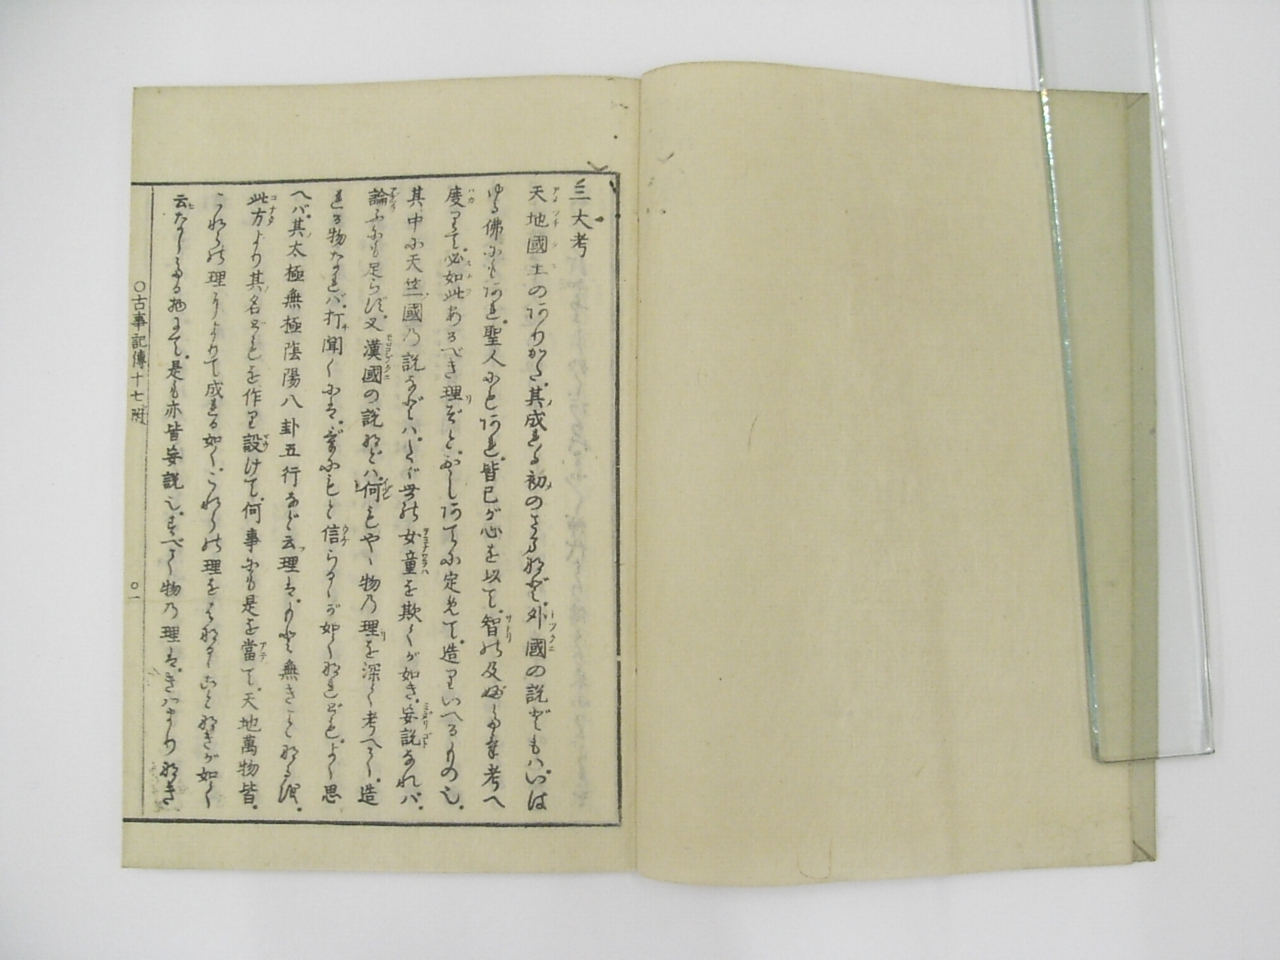 三大考
天地國土のありかた、其成れる初のさまなど、外國の説どもハ、いは
ゆる佛にもあれ、聖人にもあれ、皆己が心を以て、智の及ぶたけ考へ
度りて、必如此あるべき理ぞと、おしあてに定めて、造りいへるもの也、
其中に天竺國乃説などハ、たゞ世の女童を欺くが如き、妄説なれバ、
論ふにも足らず、又漢國の説などハ、何もやゝ物乃理を深く考へて、造
れる物なれバ、打聞くには、げにもと信らるゝが如くなれども、よく思
へバ、其太極無極陰陽八卦五行など云理は、もと無きことなるを、
此方より其名どもを作り設けて、何事にも是を當て、天地萬物皆、
これらの理によりて成れる如く、これらの理をはなるゝことなきが如く
云なしたる物にて、是も亦皆妄説也、すべて物乃理は、きハまりなき
○古事記傳十七附
○一